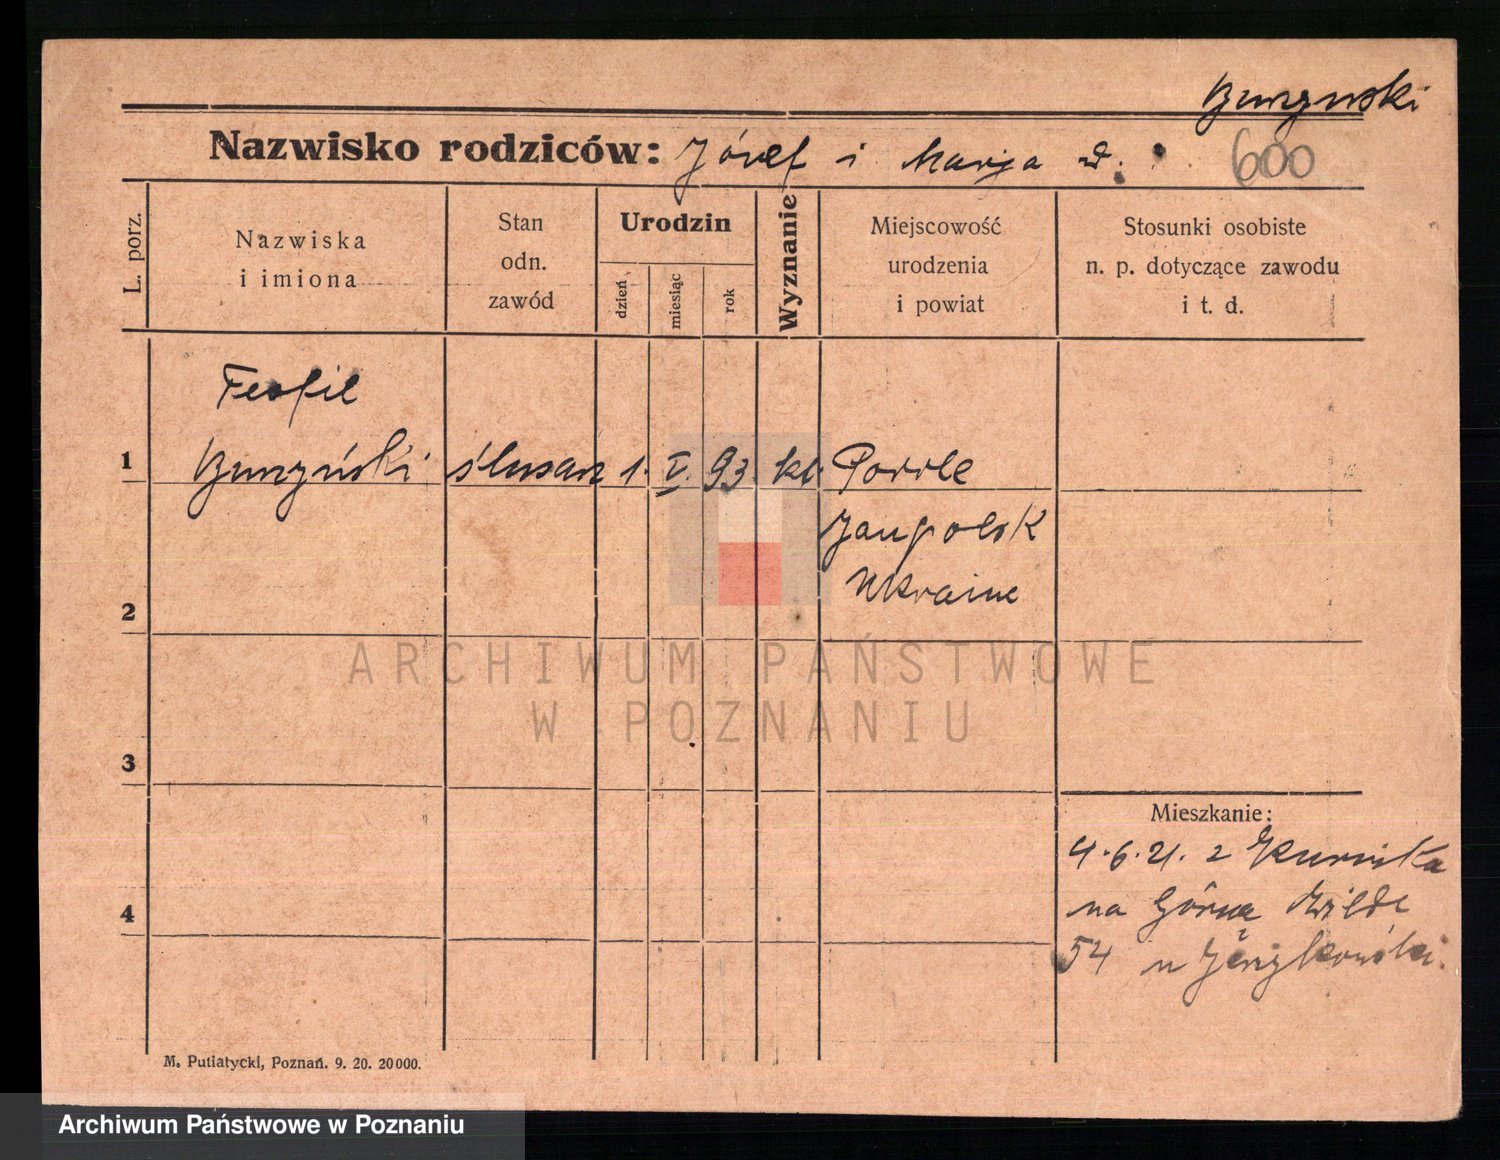 Burzyński
Nazwisko rodziców: Józef i Marja z.
600
L. porz.
Nazwiska
i imiona
Stan
odn.
zawód
Urodzin
dzień
miesiąc
rok
Wyznanie
Miejscowość
urodzenia
i powiat
Stosunki osobiste
n. p. dotyczące zawodu
i t. d.
Teofil
1 Burzyński ślusarz 1. V. 93. kt.
Jampolsk
Ukraine
2
ARCHIWUM PAŃSTWOWE
W POZNANIU
3
Mieszkanie:
4.6.21. z Kurnika
4 na Górną Wildę
54 u
M. Putiatycki, Poznań. 9. 20. 20000.
Archiwum Państwowe w Poznaniu